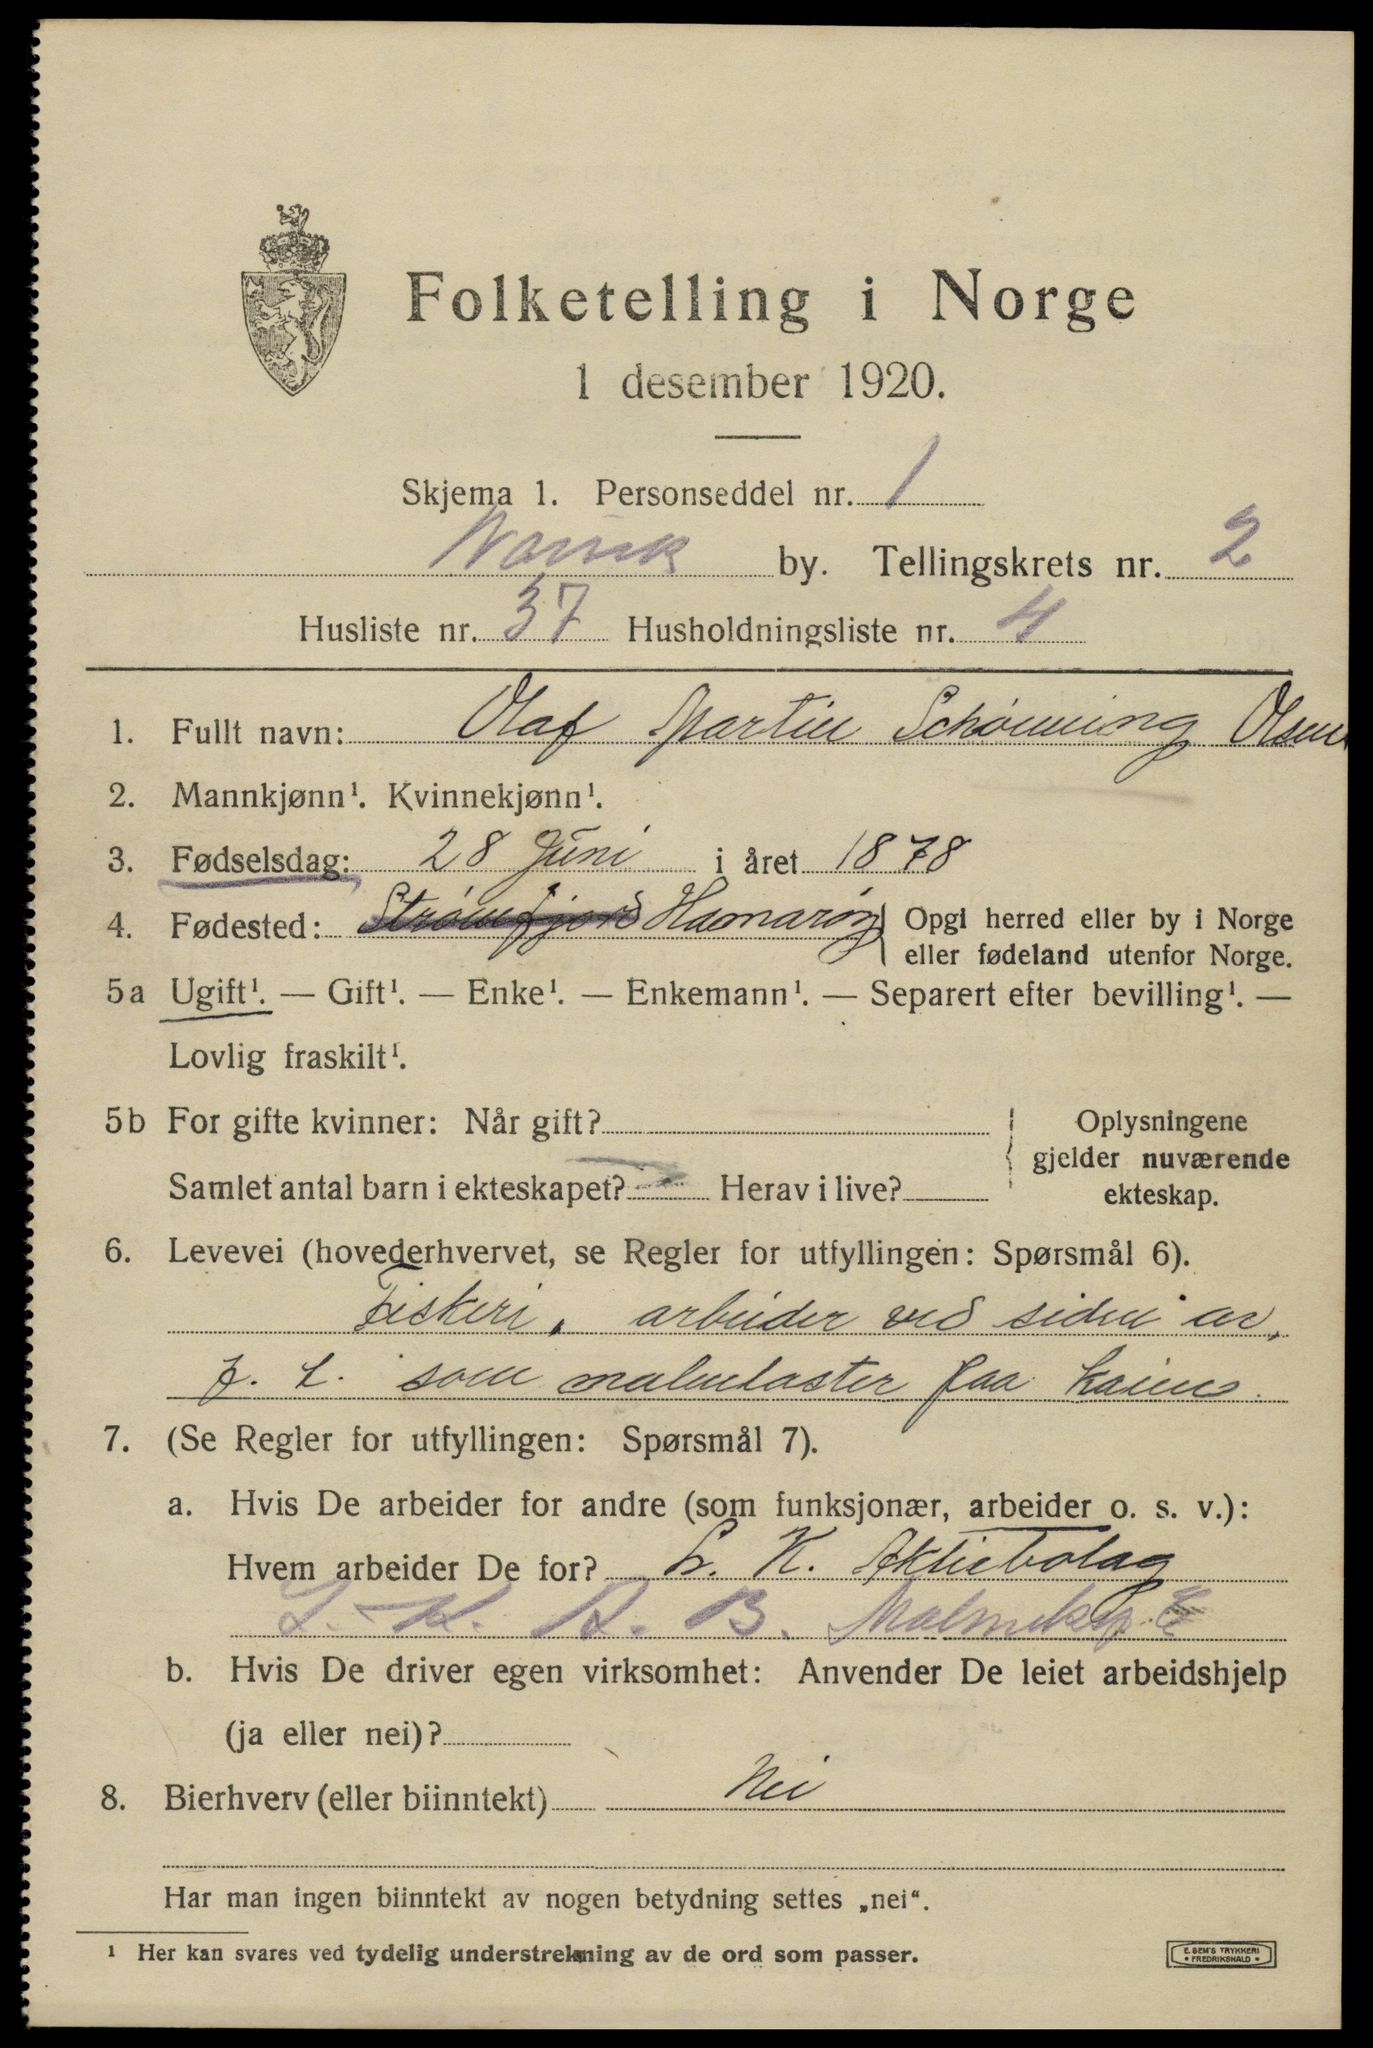 Folketelling i Norge
1 desember 1920.
Skjema 1. Personseddel nr. 1
Narvik by. Tellingskrets nr. 2
Husliste nr. 37 Husholdningsliste nr. 4
1. Fullt navn: Olaf Martin Schønning Olsen
2. Mannkjønn¹. Kvinnekjønn¹.
3. Fødselsdag: 28 Juni i året 1878
4. Fødested: Strømfjord Hamarøy } Opgi herred eller by i Norge
eller fødeland utenfor Norge.
5a Ugift¹. — Gift¹. — Enke¹. — Enkemann¹. — Separert efter bevilling¹. —
Lovlig fraskilt¹.
5b For gifte kvinner: Når gift?
Samlet antal barn i ekteskapet? Herav i live?
{ Oplysningene
gjelder nuværende
ekteskap.
6. Levevei (hovederhvervet, se Regler for utfyllingen: Spørsmål 6).
Fiskeri, arbeider ved siden av,
f. t. som malmlaster paa kaien.
7. (Se Regler for utfyllingen: Spørsmål 7).
a. Hvis De arbeider for andre (som funksjonær, arbeider o. s. v.):
Hvem arbeider De for? L. K. Aktiebolag
L. K. A. B.
b. Hvis De driver egen virksomhet: Anvender De leiet arbeidshjelp
(ja eller nei)?
8. Bierhverv (eller biinntekt) Nei
Har man ingen biinntekt av nogen betydning settes „nei“.
¹ Her kan svares ved tydelig understrekning av de ord som passer.
E. SEM'S TRYKKERI
• FREDRIKSHALD •